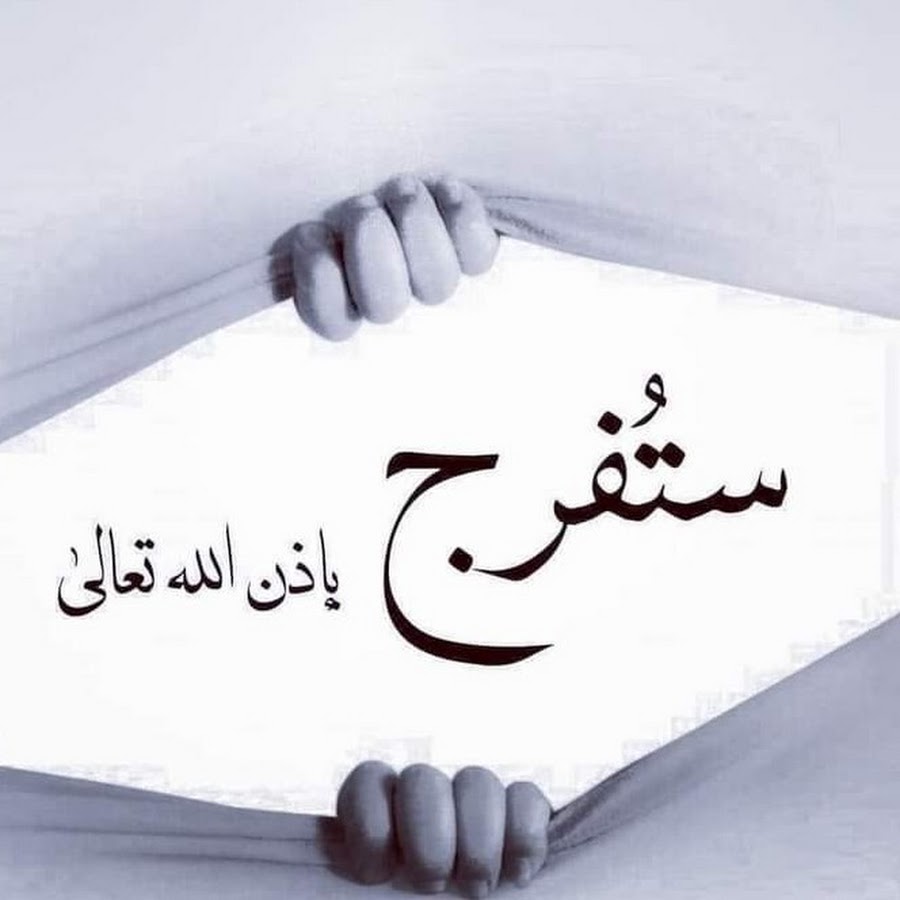 ستُفرج
بإذن الله تعالىٰ